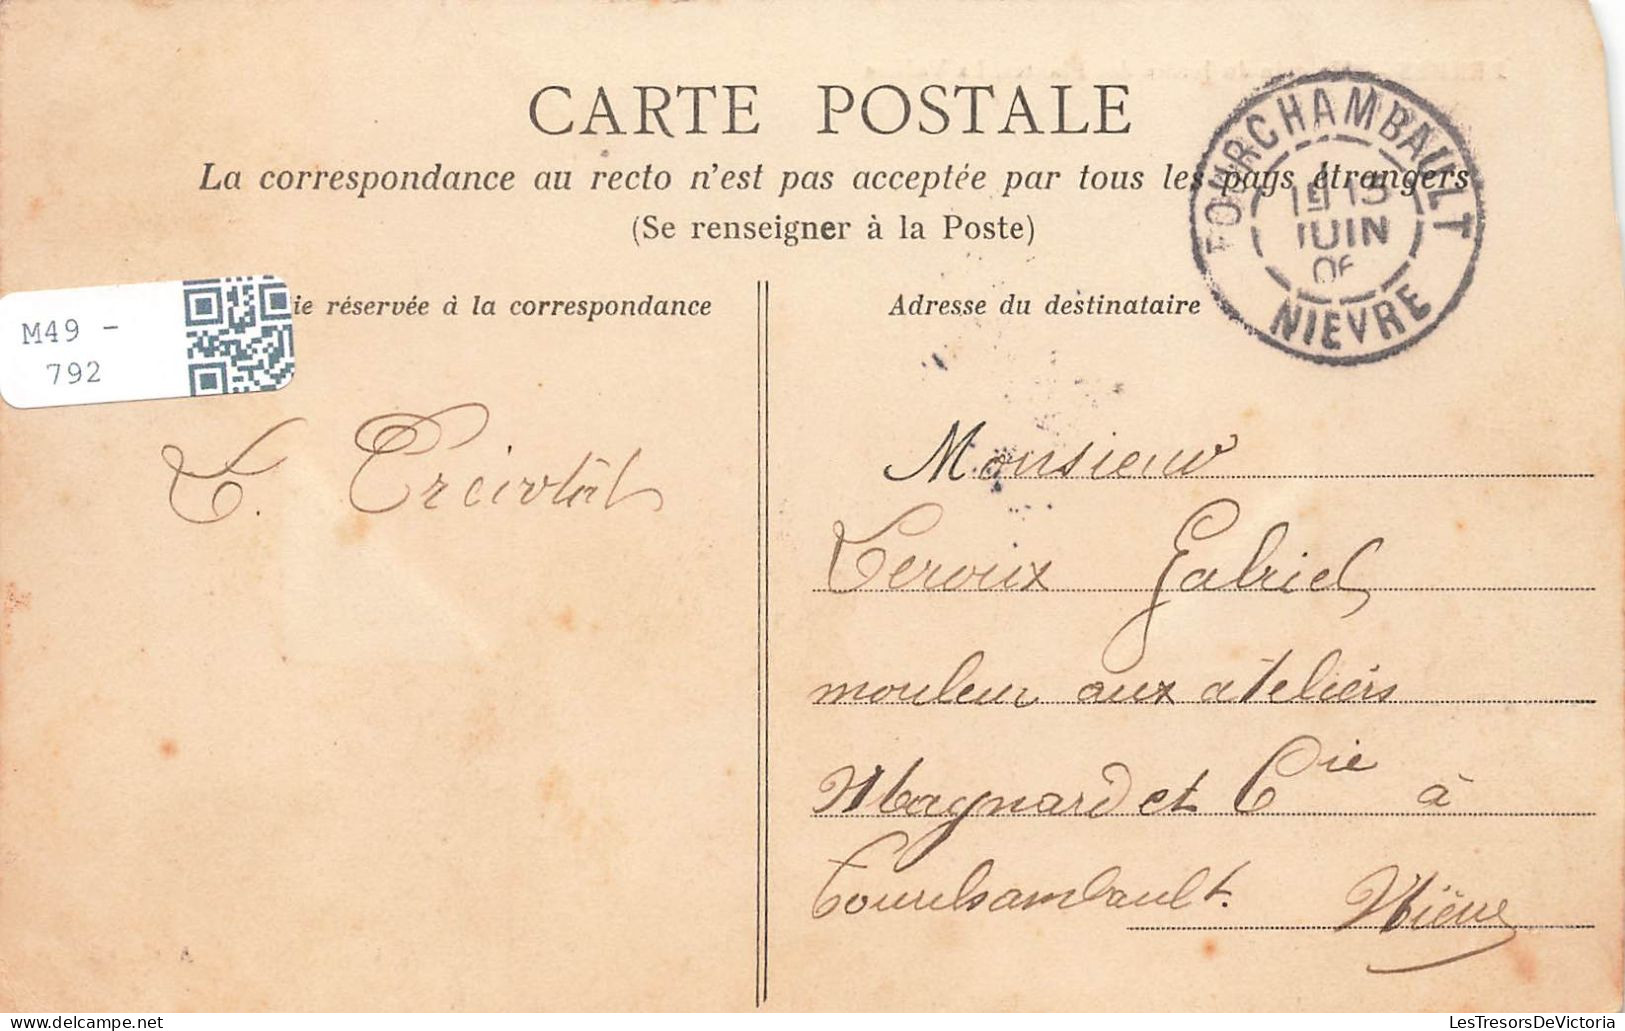 CARTE POSTALE
La correspondance au recto n'est pas acceptée par tous les pays étrangers
(Se renseigner à la Poste)
ie réservée à la correspondance
Adresse du destinataire
FOURCHAMBAULT
15
JUIN
06
NIEVRE
M49 -
792
Monsieur
Leroux Gabriel
mouleur aux ateliers
Magnard et Cie à
Fourchambault. Nièvre
LesTresorsDeVictoria
www.delcampe.net